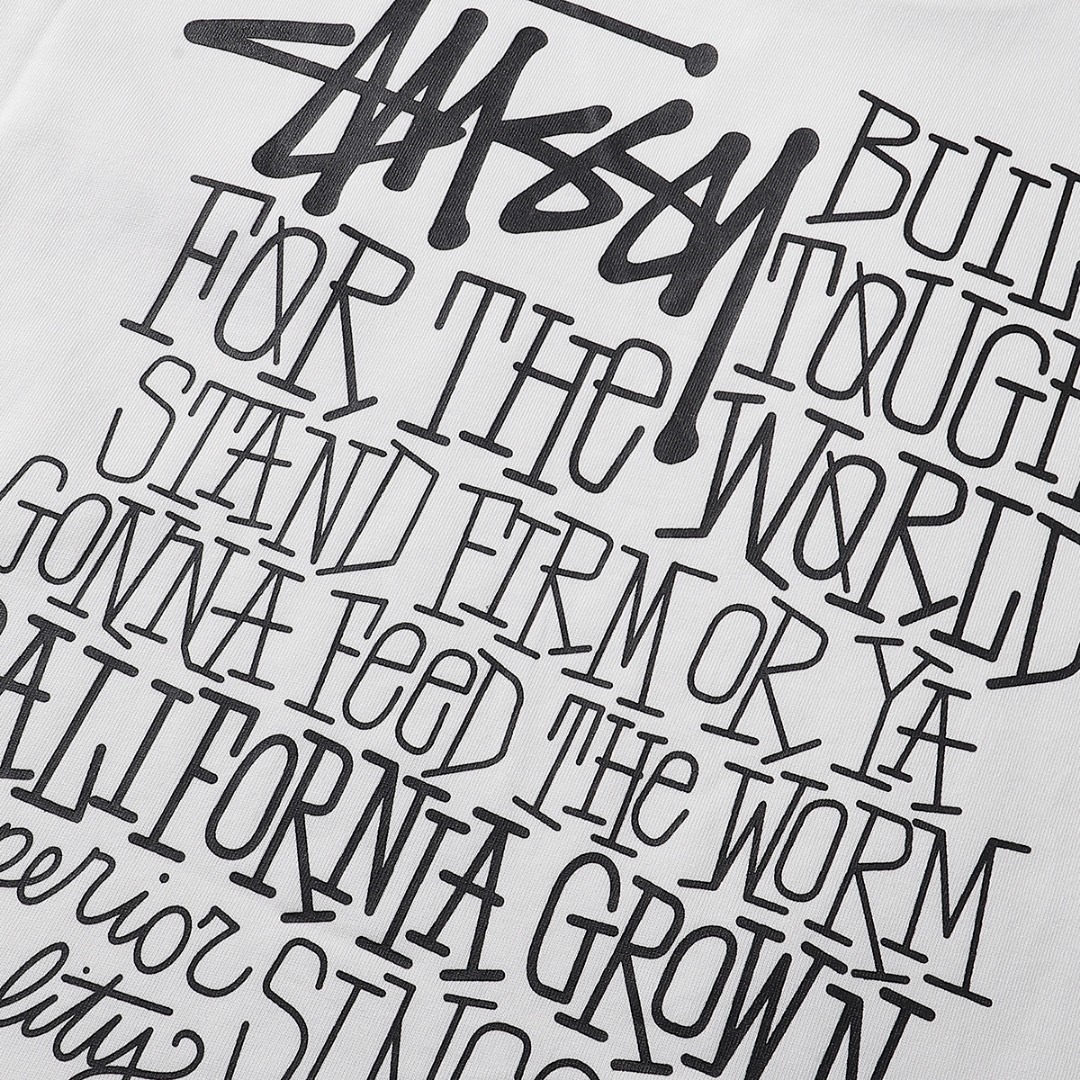 STÜSSY BUIL
TOUGH
FOR THE WORLD
STAND FIRM OR YA
GONNA FEED THE WORM
CALIFORNIA GROWN
perior SINCE
lity